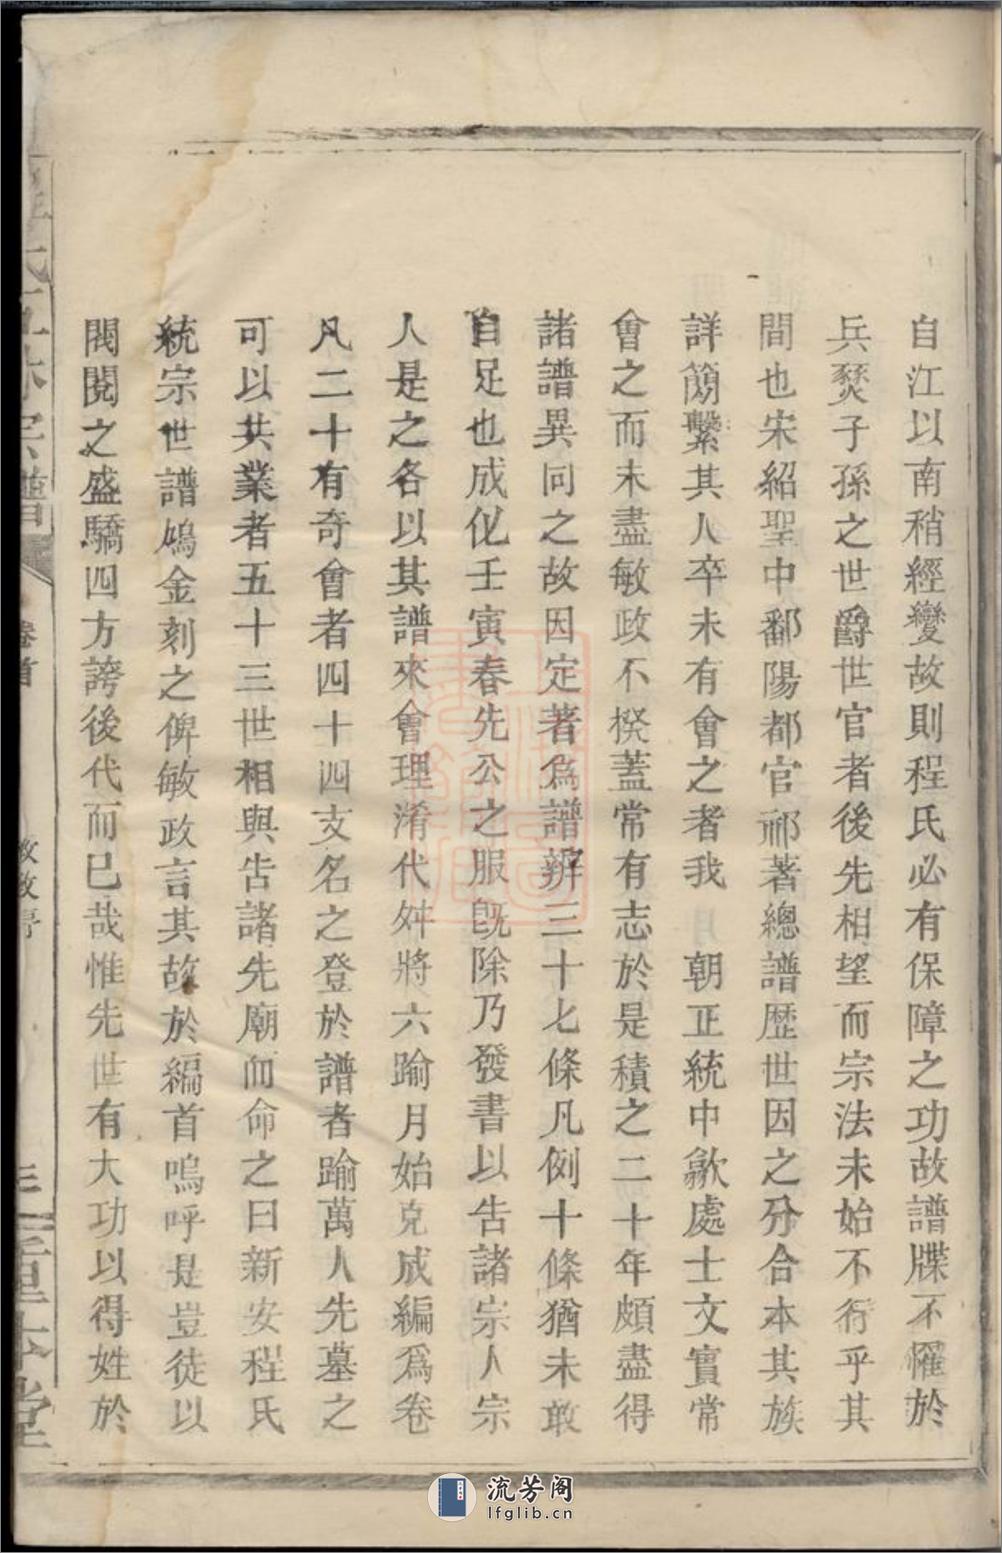 自江以南稍經變故則程氏必有保障之功故譜牒不罹於
兵燹子孫之世爵世官者後先相望而宗法未始不行乎其
間也宋紹聖中鄱陽都官祁著總譜歷世因之分合本其族
詳簡繫其人卒未有會之者我 朝正統中歙處士文實常
會之而未盡敏政不揆蓋常有志於是積之二十年頗盡得
諸譜異同之故因定著爲譜辨三十七條凡例十條猶未敢
自足也成化壬寅春先公之服旣除乃發書以告諸宗人宗
人是之各以其譜來會理淆代舛將六踰月始克成編爲卷
凡二十有奇會者四十四支名之登於譜者踰萬人先墓之
可以共業者五十三世相與告諸先廟而命之曰新安程氏
統宗世譜鳩金刻之俾敏政言其故於編首嗚呼是豈徒以
閥閱之盛驕四方誇後代而已哉惟先世有大功以得姓於
程氏五休宗譜
卷首
敘
三
堂
流芳阁
lfglib.cn